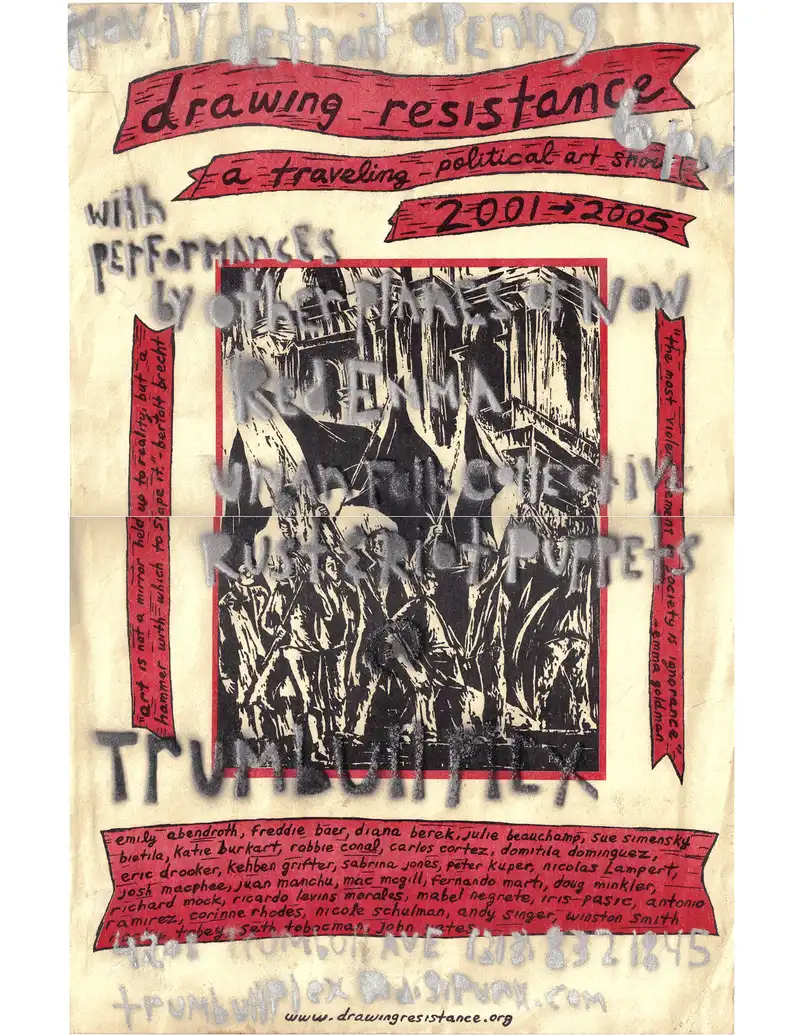 Nov 17 detroit opening
drawing resistance
6pm
a traveling political art show
2001→2005
with
performances
by other planes of now
Red Emma
urban folk collective
Rust & Riot Puppets
"art is not a mirror held up to reality, but a
hammer with which to shape it." - bertolt brecht
"the most violent element in society is ignorance"
- emma goldman
Trumbullplex
emily abendroth, freddie baer, diana berek, julie beauchamp, sue simensky
bietila, katie burkart, robbie conal, carlos cortez, domitila dominguez,
eric drooker, kehben grifter, sabrina jones, peter kuper, nicolas lampert,
josh macphee, juan manchu, mac mcgill, fernando marti, doug minkler,
richard mock, ricardo levins morales, mabel negrete, iris-pasic, antonio
ramirez, corinne rhodes, nicole schulman, andy singer, winston smith
tobey, seth tobocman, john yates
4208 Trumbull Ave 1.313.832.1845
trumbullplex@digipunx.com
www.drawingresistance.org